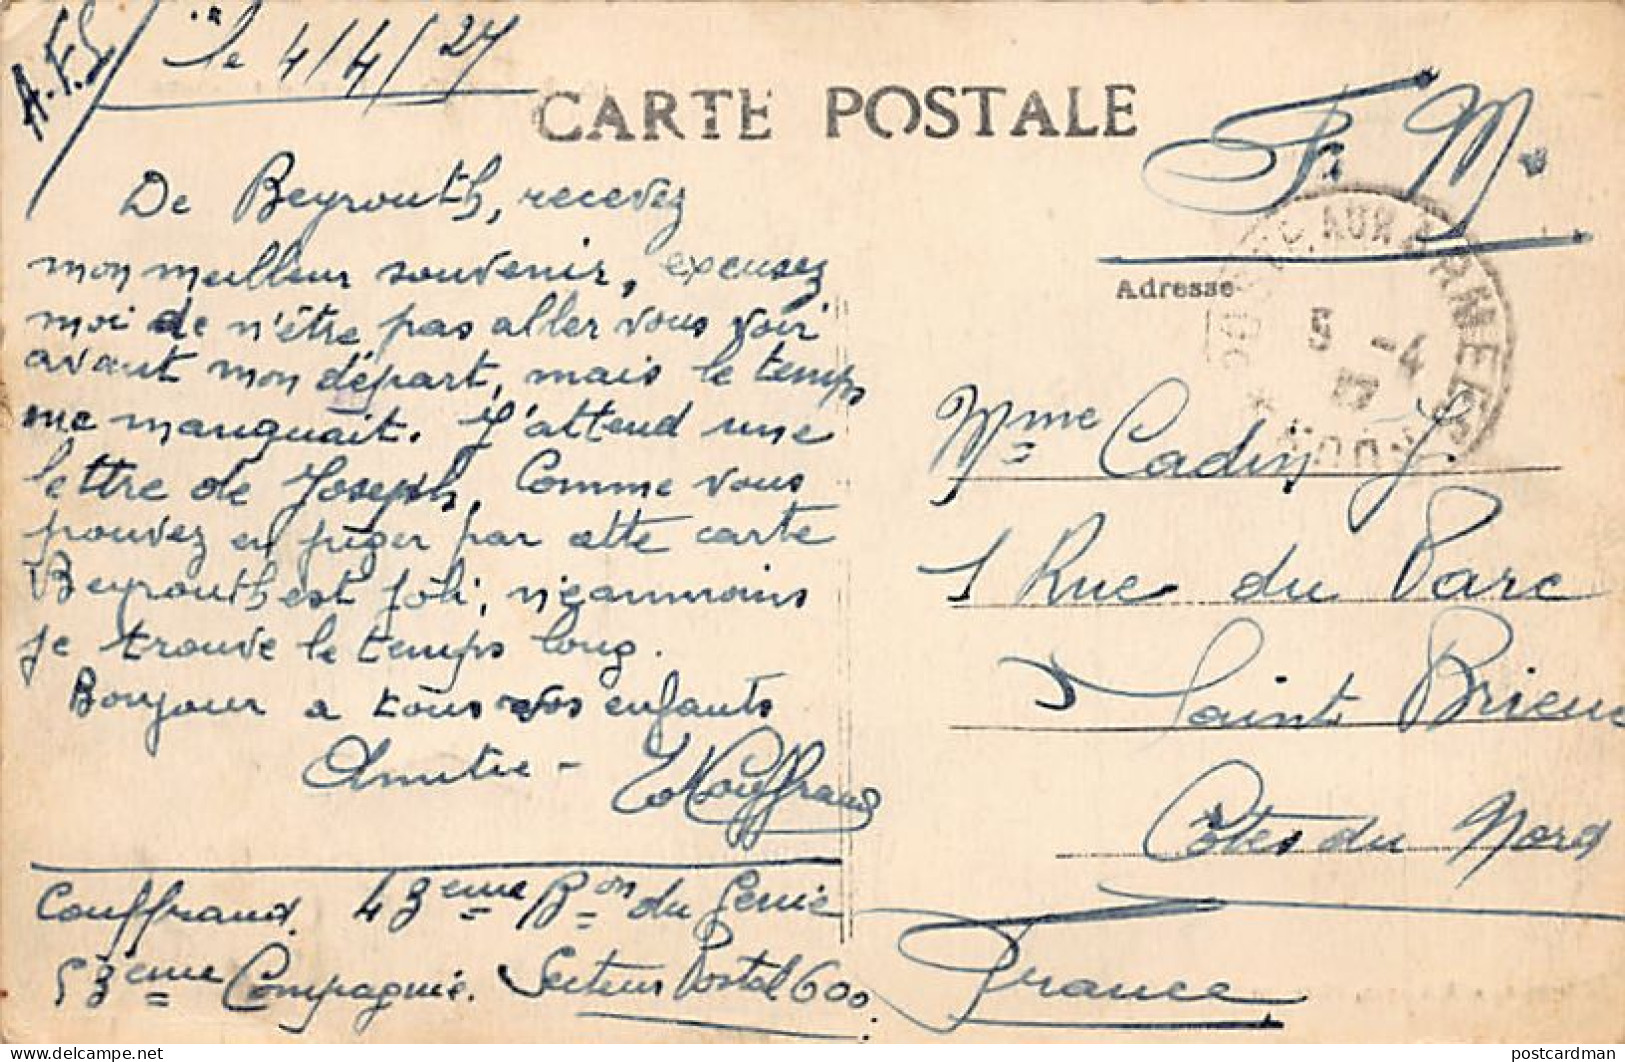 A.F.L
le 4/4/27
CARTE POSTALE
F. M.
De Beyrouth, recevez
mon meilleur souvenir, excusez
moi de n'être pas aller vous voir
avant mon départ, mais le temps
me manquait. J'attend une
lettre de Joseph, Comme vous
pouvez en juger par cette carte
Beyrouth est joli, néanmoins
je trouve le temps long.
Bonjour a tous vos enfants
Amitié -
Couffrand. 43eme Bon du Génie
53eme Compagnie. Secteur Postal 600.
Adresse
AUX ARMEES
5 -4
Mme Cadin J.
1 Rue du Parc
Saint Brieuc
Côtes du Nord
France
postcardman